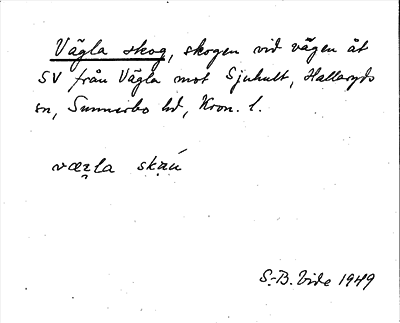 Vägla skog, skogen vid vägen åt
SV från Vägla mot Sjuhult, Hallaryds
sn, Sunnerbo hd, Kron. l.
S.-B. Vide 1949